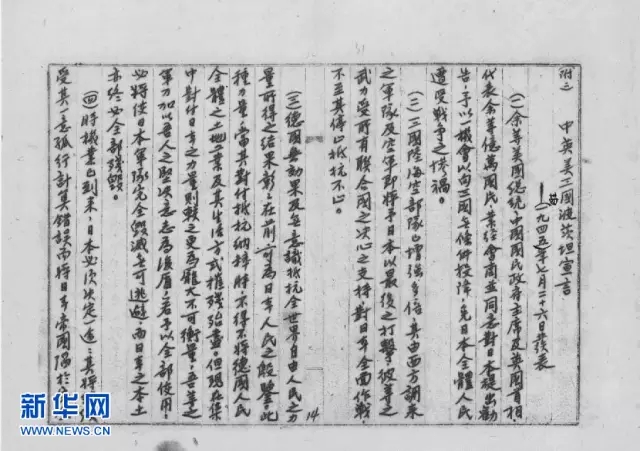 附二
中英美三國波茨坦宣言
—一九四五年七月二十六日發表
(一)余等美國總統、中國國民政府主席及英國首相,
代表余等億萬國民,業經會商並同意對日本提出勸
告,予以一機會以向三國無條件投降,免日本全體人民
遭受戰爭之慘禍。
(二)三國陸海空部隊已增強多倍,其由西方調來
之軍隊及空軍即將予日本以最後之打擊,彼等之
武力受所有聯合國之決心之支持對日本全面作戰,
不至其停止抵抗不止。
(三)德國無効果及無意識抵抗全世界自由人民之力
量所得之結果彰彰在前,可為日本人民之殷鑒。此
種力量,當其對付抵抗納粹時,不得不將德國人民
全體之土地業及其生活方式摧殘殆盡。但現在集
中對付日本之力量則較之更為龐大不可衡量。吾等之
軍力加以吾人之堅決意志為後盾,若予以全部使用,
必將使日本軍隊完全毀滅無可逃避,而日本之本土
亦終必全部殘毀。
(四)時機業已到來,日本必須決定一途:其將
受其一意孤行計算錯誤而將日本帝國陷於
14
新华网
WWW.NEWS.CN